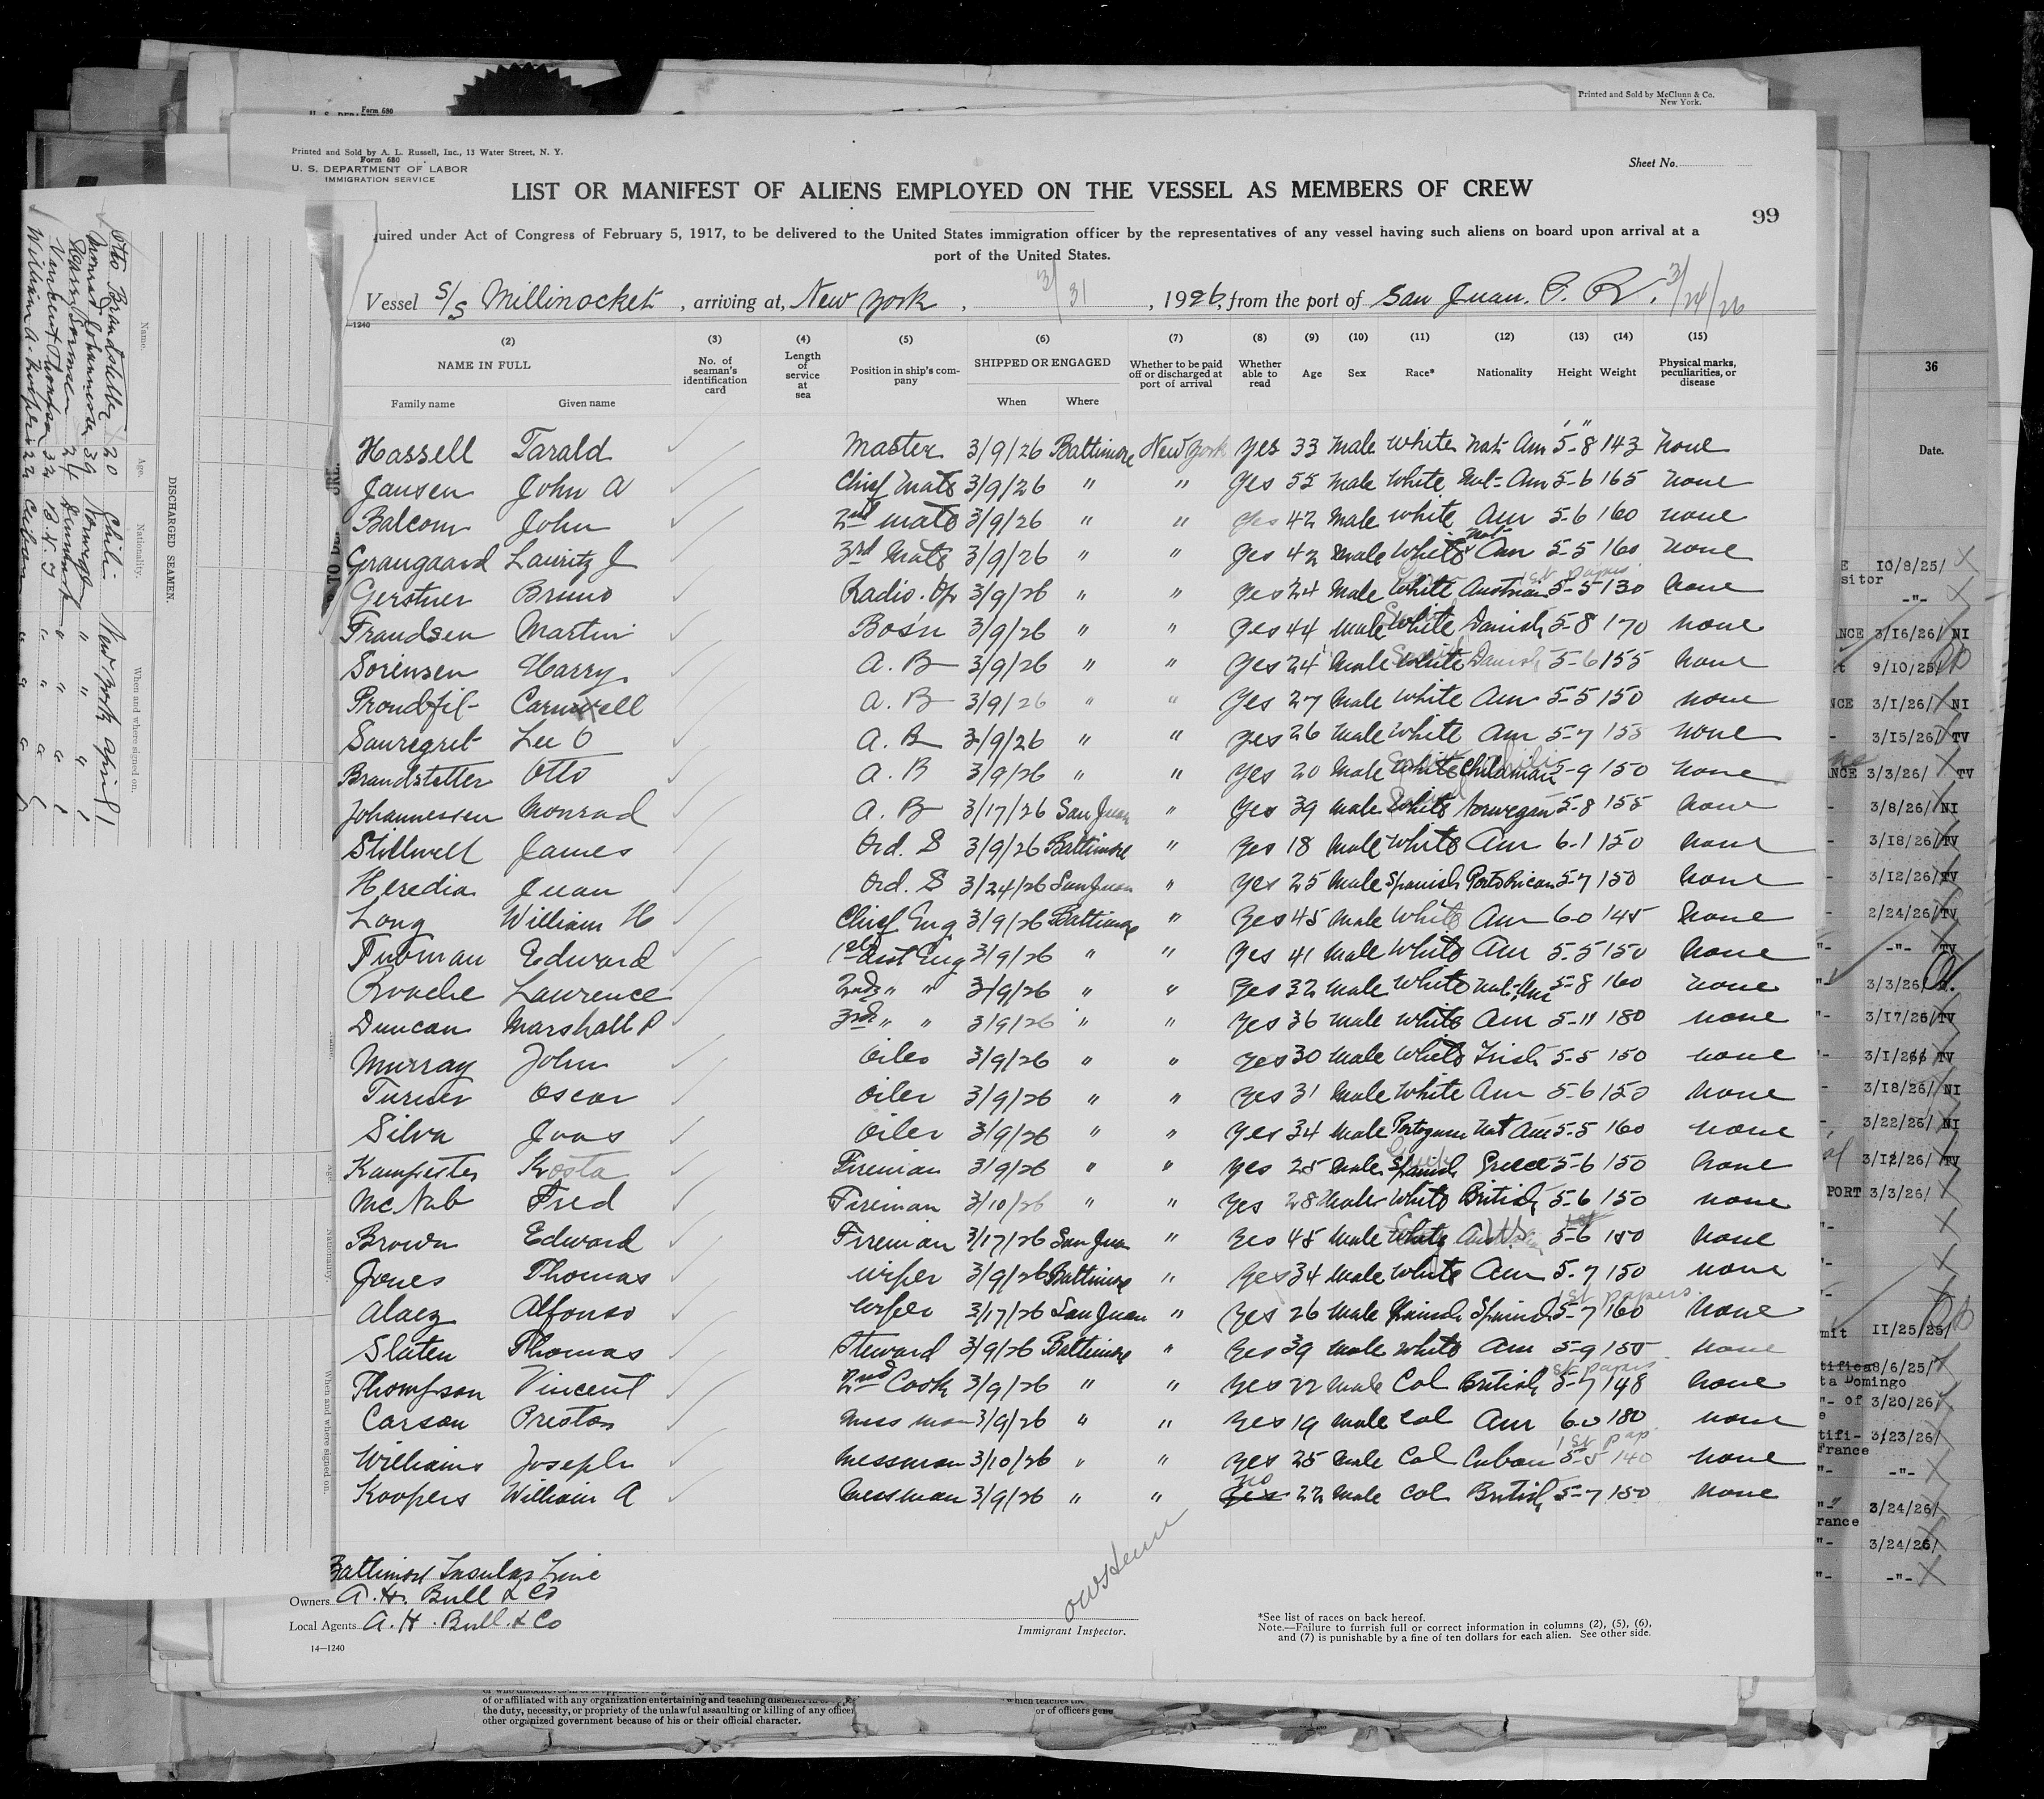 Printed and Sold by McClunn & Co.
New York.
Form 680
Printed and Sold by A. L. Russell, Inc., 13 Water Street, N. Y.
Form 680
U. S. DEPARTMENT OF LABOR
IMMIGRATION SERVICE
Sheet No.
LIST OR MANIFEST OF ALIENS EMPLOYED ON THE VESSEL AS MEMBERS OF CREW
99
uired under Act of Congress of February 5, 1917, to be delivered to the United States immigration officer by the representatives of any vessel having such aliens on board upon arrival at a
port of the United States.
Vessel S/S Millinocket, arriving at, New York, 3/31, 1926, from the port of San Juan. P. R. 3/24/26
-1240
(2) (3) (4) (5) (6) (7) (8) (9) (10) (11) (12) (13) (14) (15)
NAME IN FULL No. of seaman's identification card Length of service at sea Position in ship's company SHIPPED OR ENGAGED Whether to be paid off or discharged at port of arrival Whether able to read Age Sex Race* Nationality Height Weight Physical marks, peculiarities, or disease
Family name Given name When Where
Hassell Tarald Master 3/9/26 Baltimore New York yes 33 male white Nat. Am 5-8 143 none
Jansen John A Chief Mate 3/9/26 " " yes 55 male white Nat- Am 5-6 165 none
Balcom John 2nd mate 3/9/26 " " yes 42 male white Am 5-6 160 none
Graugaard Lauritz J 3rd Mate 3/9/26 " " yes 42 male white Nat Am 5-5 160 none
Gerstner Bruno Radio. Op 3/9/26 " " yes 24 male white Austrian 1st papers 5-5 130 none
Frandsen Martin Bosn 3/9/26 " " yes 44 male white Danish 5-8 170 none
Sorensen Harry A. B 3/9/26 " " yes 24 male white Danish 5-6 155 none
Proudfit Carnwell A. B 3/9/26 " " yes 27 male white Am 5-5 150 none
Sauregret Lee O A. B 3/9/26 " " yes 26 male white Am 5-7 155 none
Brandstetter Otto A. B 3/9/26 " " yes 20 male white Chili 5-9 150 none
Johannessen Monrad A. B 3/17/26 San Juan " yes 39 male white Norwegan 5-8 155 none
Stillwell James Ord. S 3/9/26 Baltimore " yes 18 male white Am 6-1 150 none
Heredia Juan Ord. S 3/24/26 San Juan " yes 25 male Spanish Porto Rican 5-7 150 none
Long William H Chief Eng 3/9/26 Baltimore " yes 45 male white Am 6-0 145 none
Tubman Edward 1st Asst Eng 3/9/26 " " yes 41 male white Am 5-5 150 none
Roache Laurence 2nd " " 3/9/26 " " yes 32 male white Nat-Am 5-8 160 none
Duncan Marshall P 3rd " " 3/9/26 " " yes 36 male white Am 5-11 180 none
Murray John Oiler 3/9/26 " " yes 30 male white Irish 5-5 150 none
Turner Oscar Oiler 3/9/26 " " yes 31 male white Am 5-6 150 none
Silva Joas Oiler 3/9/26 " " yes 34 male Nat Am 5-5 160 none
Kosta Fireman 3/9/26 " " yes 25 male Spanish Greece 5-6 150 none
McNab Fred Fireman 3/10/26 " " yes 28 male white British 5-6 150 none
Brown Edward Fireman 3/17/26 San Juan " yes 45 male white 5-6 150 none
Jones Thomas wiper 3/9/26 Baltimore " yes 34 male white Am 5-7 150 none
Alaez Alfonso wiper 3/17/26 San Juan " yes 26 male Spanish Spanish 1st papers 5-7 160 none
Slaten Thomas Steward 3/9/26 Baltimore " yes 39 male white Am 5-9 155 none
Thompson Vincent 2nd Cook 3/9/26 " " yes 22 male Col British 1st papers 5-7 148 none
Carson Preston Mess man 3/9/26 " " yes 19 male Col Am 6-0 180 none
Williams Joseph Messman 3/10/26 " " yes 25 male Col Cuban 1st pap. 5-5 140 none
Koopers William A Messman 3/9/26 " " no 22 male Col British 5-7 150 none
Baltimore Insular Line
Owners A. H. Bull & Co
Local Agents A. H. Bull & Co
14—1240
Immigrant Inspector.
*See list of races on back hereof.
Note.—Failure to furnish full or correct information in columns (2), (5), (6),
and (7) is punishable by a fine of ten dollars for each alien. See other side.
DISCHARGED SEAMEN.
Name. Age. Nationality. When and where signed on.
Otto Brandstetter 20 Chili New York April 1
Monrad Johannessen 39 Norwegan " " "
Harry Sorensen 24 Denmark " " "
Vincent Thompson 32 B. W. I " " "
William A. Koopers 22 Cuban " " "
36
Date.
10/8/25/
sitor
-"-
ANCE 3/16/26/ NI
9/10/25/
NCE 3/1/26/ NI
3/15/26/ TV
ANCE 3/3/26/ TV
3/8/26/ NI
3/18/26/ TV
3/12/26/ TV
2/24/26/ TV
"- -"- TV
3/3/26/
3/17/26/ TV
3/1/26/ TV
3/18/26/ NI
3/22/26/ NI
3/12/26/ TV
PORT 3/3/26/
mit 11/25/25/
tifica 8/6/25/
ta Domingo
"- of 3/20/26/
tifi- 3/23/26/
France
"- -"-
3/24/26/
rance
"- 3/24/26/
"- -"-
of or affiliated with any organization entertaining and teaching disbelief in or
the duty, necessity, or propriety of the unlawful assaulting or killing of any officer
other organized government because of his or their official character.
which teaches the
or of officers gene